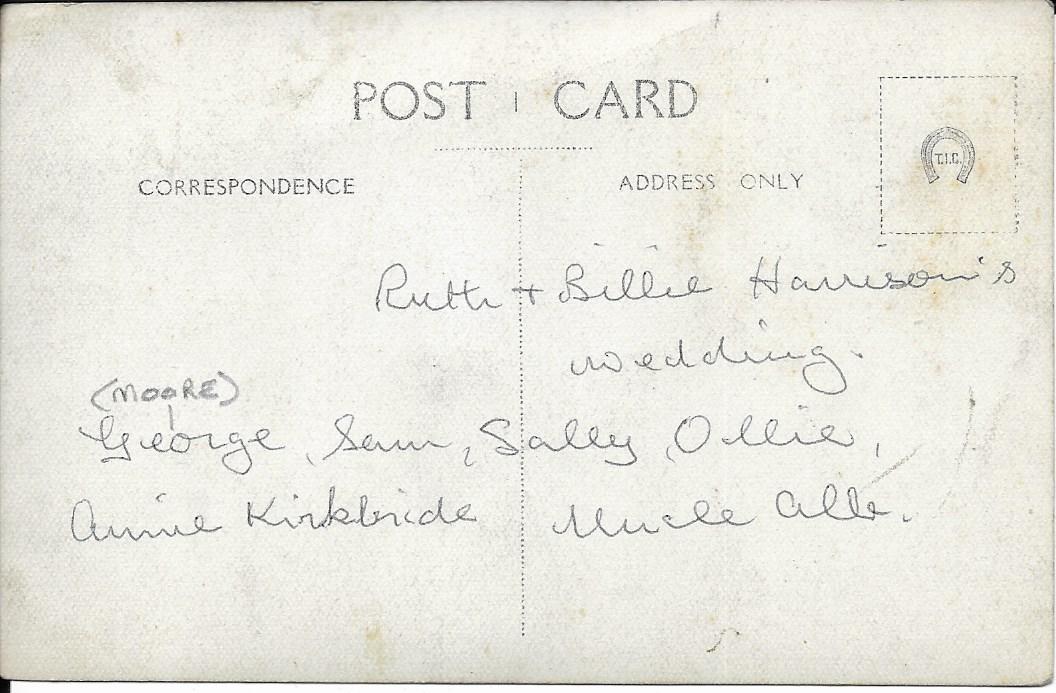 POST CARD
CORRESPONDENCE
ADDRESS ONLY
T.I.C.
Ruth + Billie Harrison's
wedding.
(MOORE)
George, Sam, Sally, Ollie,
Annie Kirkbride Uncle